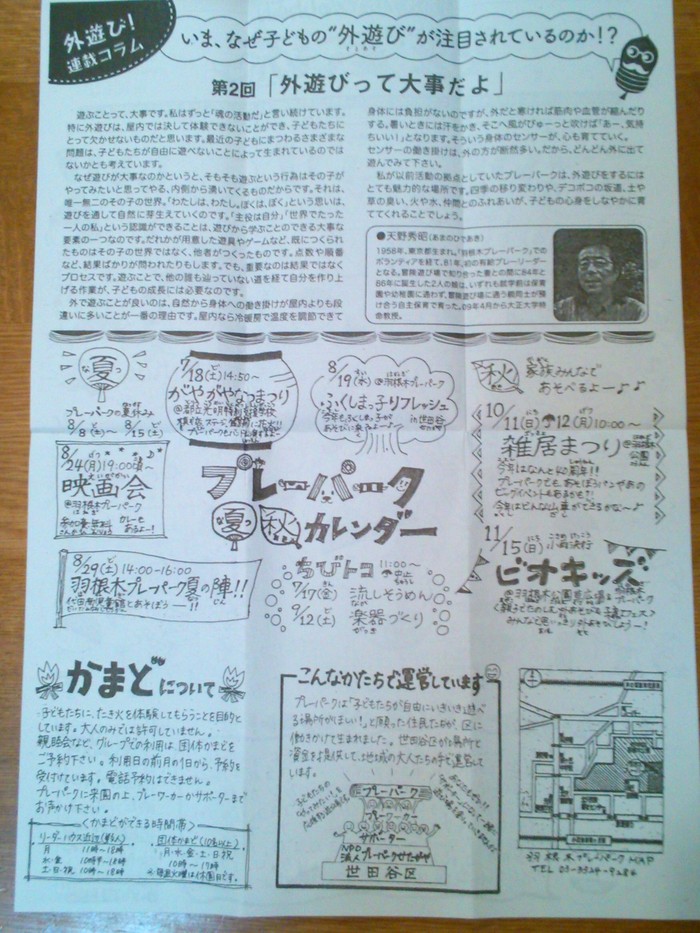 外遊び!
連載コラム
いま、なぜ子どもの“外遊び”が注目されているのか!?
第2回「外遊びって大事だよ」
遊ぶことって、大事です。私はずっと「魂の活動だ」と言い続けています。
特に外遊びは、屋内では決して体験できないことができ、子どもたちに
とって欠かせないものだと思います。最近の子どもにまつわるさまざまな
問題は、子どもたちが自由に遊べないことによって生まれているのでは
ないかとも考えています。
なぜ遊びが大事なのかというと、そもそも遊ぶという行為はその子が
やってみたいと思ってやる、内側から湧いてくるものだからです。それは、
唯一無二のその子の世界。「わたしは、わたし。ぼくは、ぼく」という思いは、
遊びを通して自然に芽生えていくのです。「主役は自分」「世界でたった
一人の私」という認識ができることは、遊びから学ぶことのできる大事な
要素の一つなのです。だれかが用意した遊具やゲームなど、既につくられ
たものはその子の世界ではなく、他者がつくったものです。点数や順番
など、結果ばかりが問われたりもします。でも、重要なのは結果ではなく
プロセスです。遊ぶことで、他の誰も辿っていない道を経て自分を作り上
げる作業が、子どもの成長には必要なのです。
外で遊ぶことが良いのは、自然から身体への働き掛けが屋内よりも段
違いに多いことが一番の理由です。屋内なら冷暖房で温度を調節できて
身体には負担がないのですが、外だと寒ければ筋肉や血管が縮んだり
する。暑いときには汗をかき、そこへ風がぴゅーっと吹けば「あー、気持
ちいい!」となります。そういう身体のセンサーが、心も育てていく。
センサーの働き掛けは、外の方が断然多い。だから、どんどん外に出て
遊んでみて下さい。
私が以前活動の拠点としていたプレーパークは、外遊びをするには
とても魅力的な場所です。四季の移り変わりや、デコボコの坂道、土や
草の臭い、火や水、仲間とのふれあいが、子どもの心身をしなやかに育
ててくれることでしょう。
●天野秀昭(あまのひであき)
1958年、東京都生まれ。「羽根木プレーパーク」での
ボランティアを経て、81年、初の有給プレーリーダー
となる。冒険遊び場で知り合った妻との間に84年と
86年に誕生した2人の娘は、いずれも就学前は保育
園や幼稚園に通わず、冒険遊び場に通う親同士が預
け合う自主保育で育った。09年4月から大正大学特
命教授。
夏
なつ
プレーパークの夏休み
8/8(土)~8/15(土)
7/18(土)14:50~
がやがやなつまつり
8/19(水)@羽根木プレーパーク
ふくしまっ子リフレッシュ
in世田谷
秋
家族みんなで
あそべるよー♪
8/24(月)19:00頃~
映画会
@羽根木プレーパーク
プレーパーク
夏 秋 カレンダー
10/11(日)12(月)10:00~
雑居まつり
@羽根木公園
今年はなんと40周年!!
8/29(土)14:00-16:00
羽根木プレーパーク夏の陣!!
ちびトコ 11:00~
7/17(金) 流しそうめん
9/12(土) 楽器づくり
11/15(日)小雨決行
ビオキッズ
かまどについて
子どもたちに、たき火を体験してもらうことを目的と
しています。大人のみでは許可していません。
親睦会など、グループでの利用は、団体かまどを
ご予約下さい。利用日の前月の1日から、予約を
受付けています。電話予約はできません。
プレーパークに来園の上、プレーワーカーかサポーターまで
お声かけ下さい。
<かまどができる時間帯>
月 11時~18時
水~金 10時半~18時
土・日・祝 10時~18時
団体かまど(10名以上)
月・水・金・土・日・祝
10時~17時
こんなかたちで運営しています
プレーパークは「子どもたちが自由にいきいき遊べ
る場所がほしい!」と願った住民たちが、区に
働きかけて生まれました。世田谷区が場所と
資金を提供して、地域の大人たちの手で運営して
います。
プレーパーク
プレーワーカー
サポーター
NPO法人プレーパークせたがや
世田谷区
羽根木プレーパークMAP
TEL 03-3324-9284